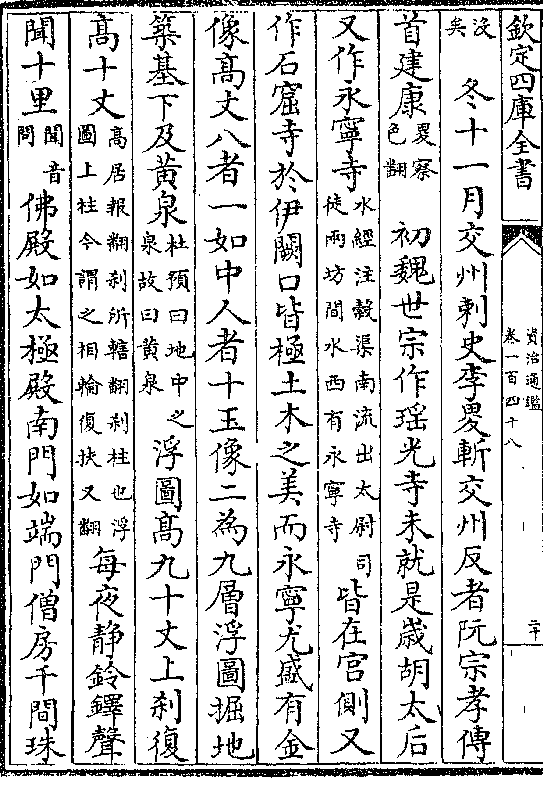 欽定四庫全書
資治通鑑
卷一百四十八
二十
没矣 冬十一月交州刺史李畟斬交州反者阮宗孝傳
首建康畟察色翻 初魏世宗作瑶光寺未就是歲胡太后
又作永寧寺水經注榖渠南流出太尉司徒兩坊間水西有永寧寺皆在宫側又
作石窟寺於伊闕口皆極土木之美而永寧尤盛有金
像髙丈八者一如中人者十玉像二為九層浮圖掘地
築基下及黄泉杜預曰地中之泉故曰黄泉浮圖髙九十丈上刹復
髙十丈髙居報翻刹所轄翻刹柱也浮圖上柱今謂之相輪復扶又翻每夜静鈴鐸聲
聞十里聞音問佛殿如太極殿南門如端門僧房千間珠